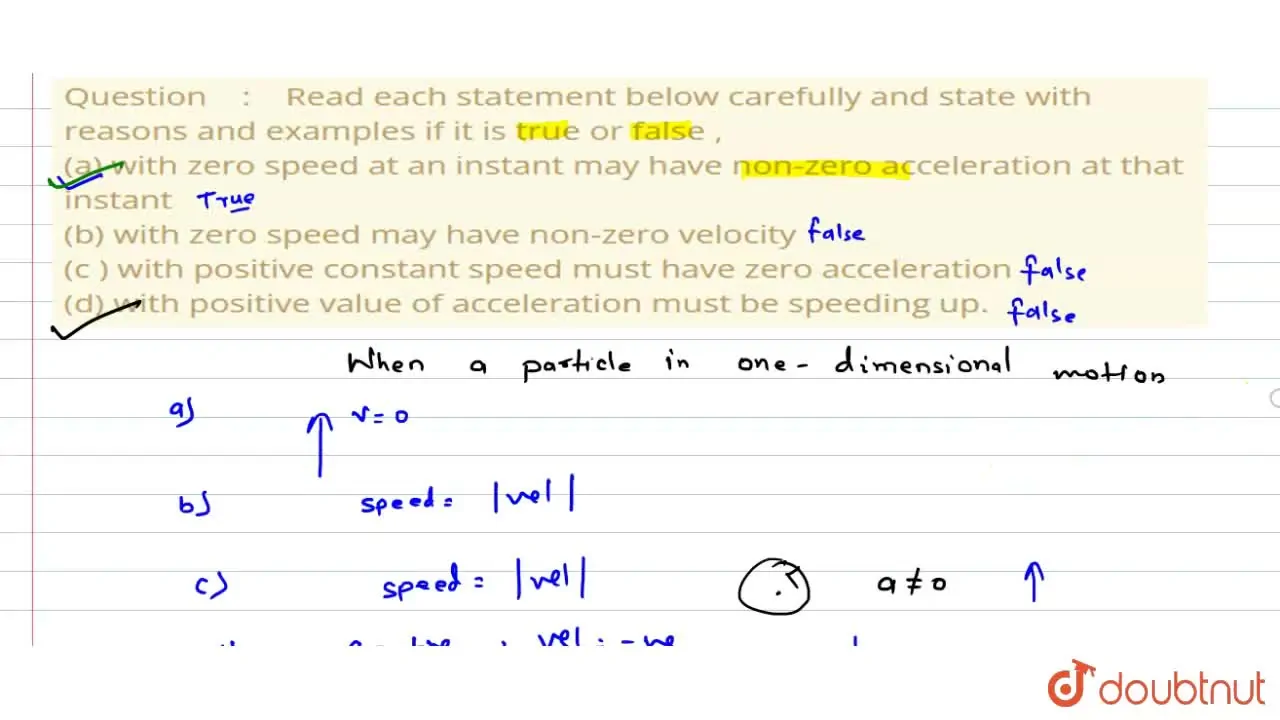 Question : Read each statement below carefully and state with
reasons and examples if it is true or false ,
(a) with zero speed at an instant may have non-zero acceleration at that
instant True
(b) with zero speed may have non-zero velocity false
(c ) with positive constant speed must have zero acceleration false
(d) with positive value of acceleration must be speeding up. false
When a particle in one-dimensional motion
a) v=0
b) speed= |vel|
c) speed= |vel| a≠0
vel : -ve
doubtnut